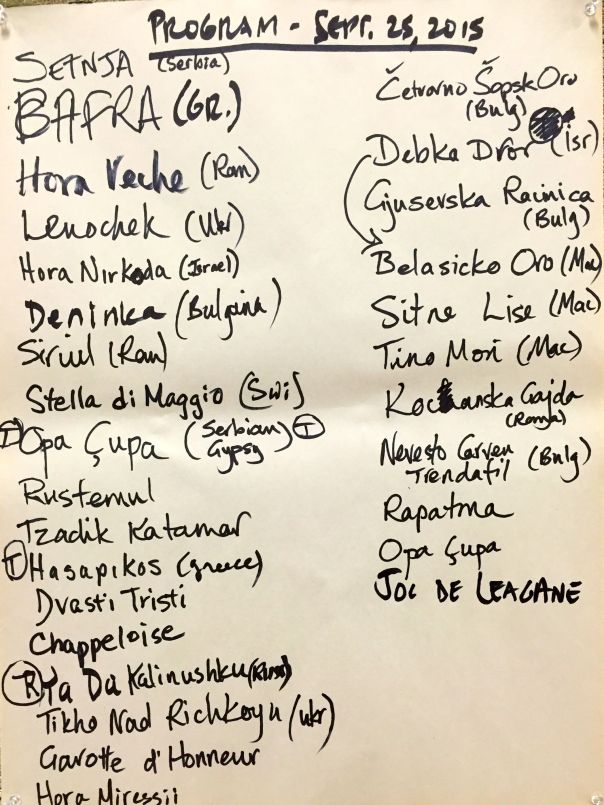 PROGRAM - SEPT. 25, 2015
SETNJA (Serbia)
BAFRA (GR.)
Hora Veche (Rom)
Lenochek (Ukr)
Hora Nirkoda (Israel)
Deninka (Bulgaria)
Sirul (Rom)
Stella di Maggio (Swi)
T Opa Çupa (Serbian Gypsy) T
Rustemul
Tzadik Katamar
T Hasapikos (greece)
Dvasti Tristi
Chappeloise
R Ya Da Kalinushku (Russ)
Tikho Nad Richkoyu (Ukr)
Gavotte d'Honneur
Hora Miresii
Četvorno Šopsk Oro
(Bulg)
Debka Dror (Isr)
Gjusevska Racinica
(Bulg)
Belasicko Oro (Mac)
Sitne Lise (Mac)
Tino Mori (Mac)
Kočanska Gajda
(Roma)
Nevesto Carven (Bulg)
Trendafil
Rapatma
Opa Çupa
JOC DE LEAGANE